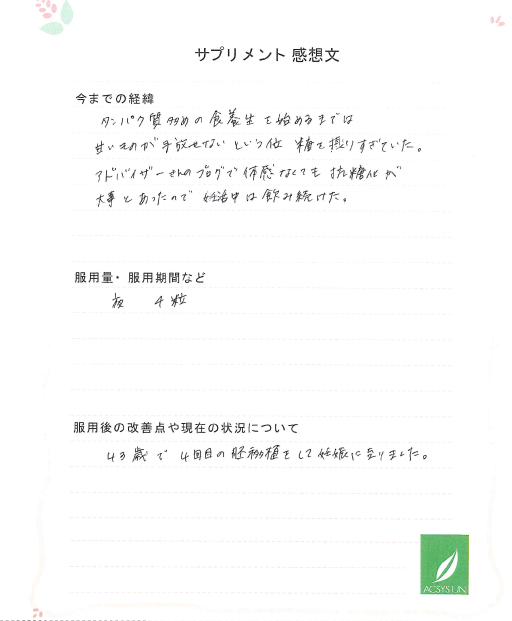 サプリメント 感想文
今までの経緯
タンパク質多めの食養生を始めるまでは
甘いものが手放せないという位 糖を摂りすぎていた。
アドバイザーさんのブログで体感なくても抗糖化が
大事とあったので 妊活中は飲み続けた。
服用量・服用期間など
夜 4粒
服用後の改善点や現在の状況について
43歳で4回目の胚移植をして妊娠に至りました。
ACSYSUN